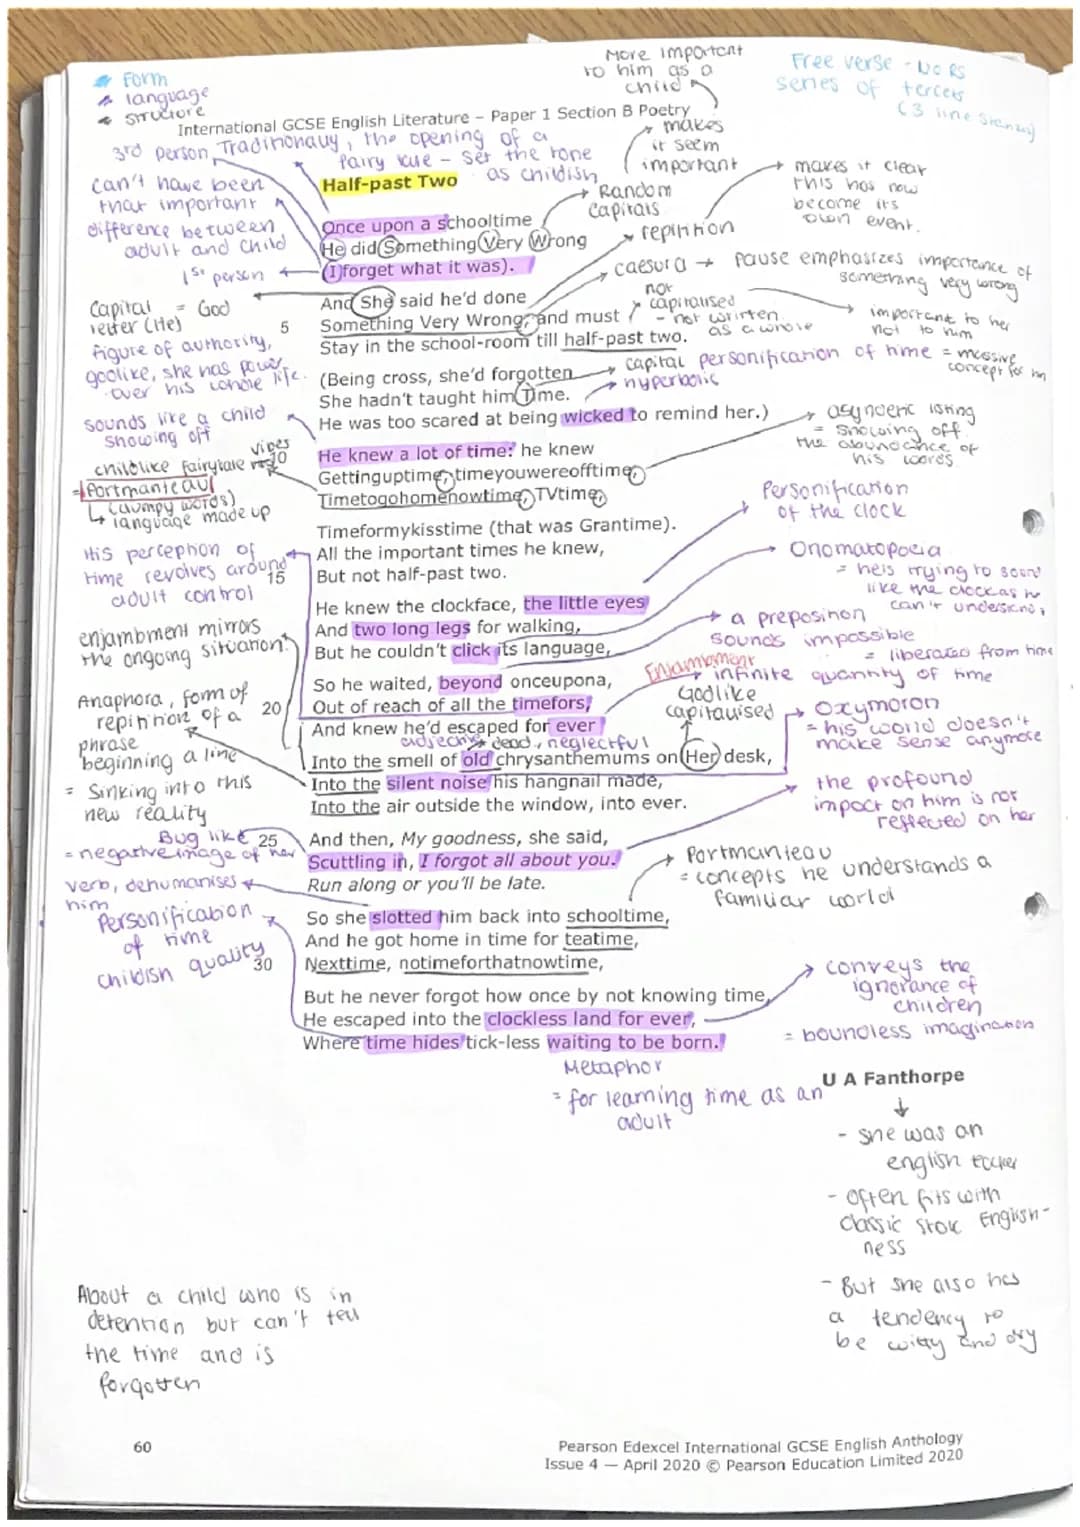 Form
language
structure
More important
to him as a
child
Free verse - No RS
series of tercets
(3 line stanzas)
International GCSE English Literature – Paper 1 Section B Poetry
3rd person
Traditionally, the opening of a
fairy tale - set the tone
as childish
makes
it seem
important
Half-past Two
can't have been
that important
difference between
adult and child
1st person
Random
capitals
repitition
makes it clear
this has now
become its
own event.
Once upon a schooltime
He did Something Very Wrong
(I forget what it was).
caesura → pause emphasizes importance of
something very wrong
Capital = God
letter (He)
figure of authority,
godlike, she has power
over his whole life.
And She said he'd done
5
Something Very Wrong, and must
Stay in the school-room till half-past two.
not
capitalised
- not written
as a whole
important to her
not to him
(Being cross, she'd forgotten
She hadn't taught him Time.
He was too scared at being wicked to remind her.)
capital personification of time = massive
concept for him
hyperbolic
sounds like a child
showing off
asyndetic listing
= showing off.
the abundance of
his words.
He knew a lot of time: he knew
10
Gettinguptime, timeyouwereofftime,
Timetogohomenowtime, TVtime,
vibes
childlike fairytale
= Portmanteau
(clumpy words)
↳ language made up
Timeformykisstime (that was Grantime).
All the important times he knew,
15
But not half-past two.
His perception of
time revolves around
adult control
Personification
of the clock
He knew the clockface, the little eyes
And two long legs for walking,
But he couldn't click its language,
Onomatopoeia
= he is trying to sound
like the clock as he
can't understand,
enjambment mirrors
the ongoing situation.
a preposition
sounds impossible
= liberated from time
Enjambment
infinite quantity of time
So he waited, beyond onceupona,
20
Out of reach of all the timefors,
And knew he'd escaped for ever
Godlike
capitalised
adjective → dead, neglectful
Anaphora, form of
repitition of a
phrase
beginning a line
= Sinking into this
new reality
Into the smell of old chrysanthemums on Her desk,
Into the silent noise his hangnail made,
Into the air outside the window, into ever.
Oxymoron
= his world doesn't
make sense anymore
the profound
impact on him is not
reflected on her
Bug like
= negative image of her
25
And then, My goodness, she said,
Scuttling in, I forgot all about you.
Run along or you'll be late.
verb, dehumanises
him
Portmanteau
= concepts he understands a
familiar world
So she slotted him back into schooltime,
And he got home in time for teatime,
30
Nexttime, notimeforthatnowtime,
Personification
of time
childish quality
But he never forgot how once by not knowing time,
He escaped into the clockless land for ever,
Where time hides tick-less waiting to be born.
conveys the
ignorance of
children
= boundless imagination
Metaphor
= for learning time as an
adult
U A Fanthorpe
- she was an
english teacher
- Often fits with
classic English-
ness
- But she also has
a tendency to
be witty and dry
About a child who is in
detention but can't tell
the time and is
forgotten
60
Pearson Edexcel International GCSE English Anthology
Issue 4 — April 2020 © Pearson Education Limited 2020